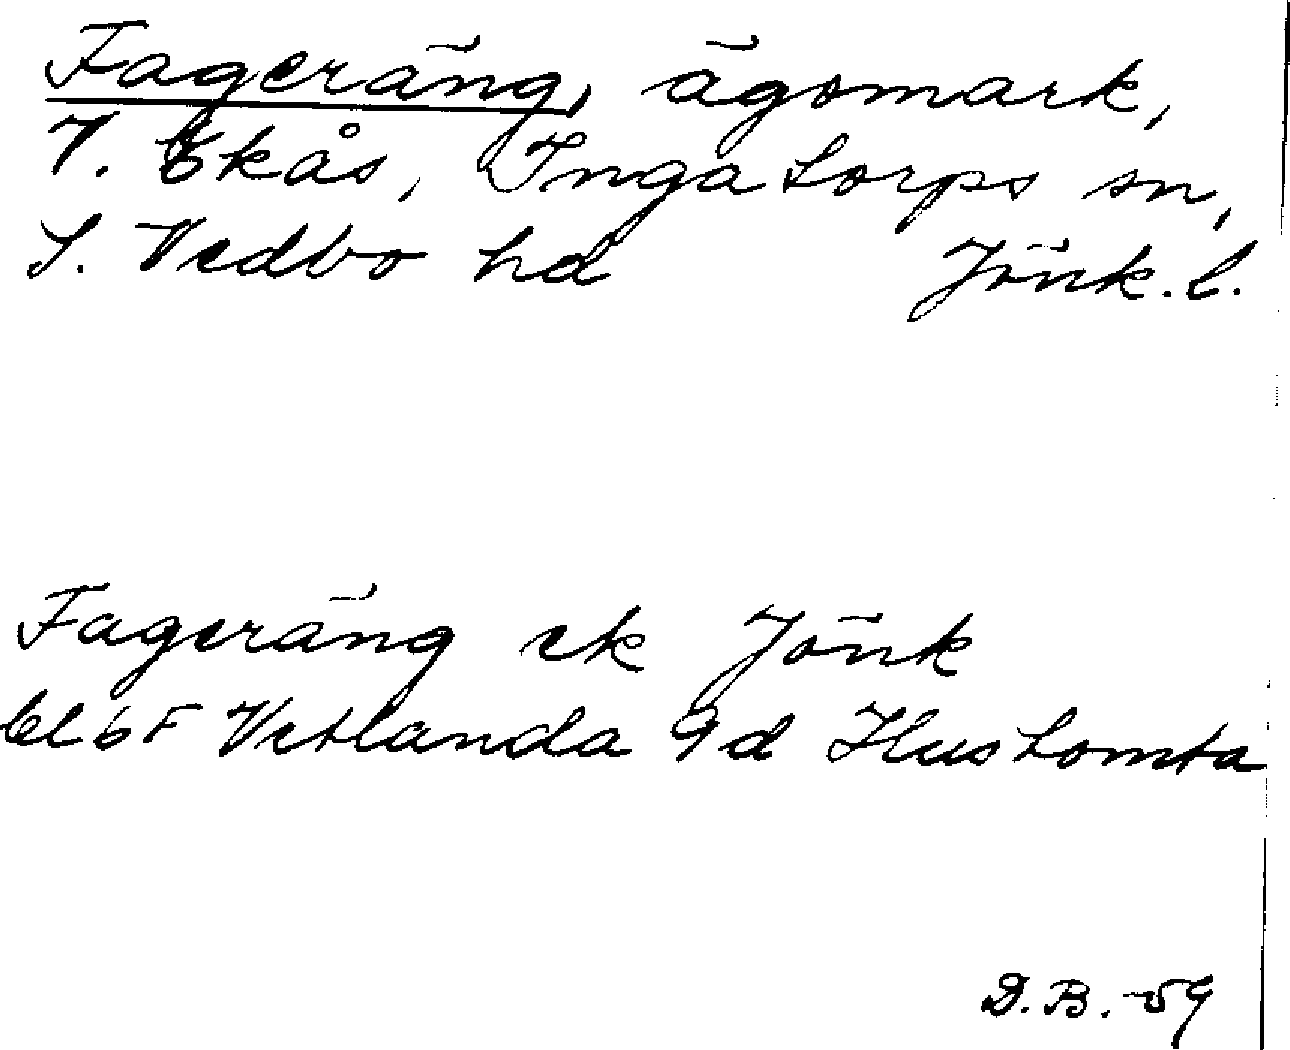 Fageräng, ägomark,
V. Ekås, Ingatorps sn,
S. Vedbo hd Jönk. l.
Fageräng ek Jönk
bl 6F Vetlanda 9d Hustomta
D.B. -59